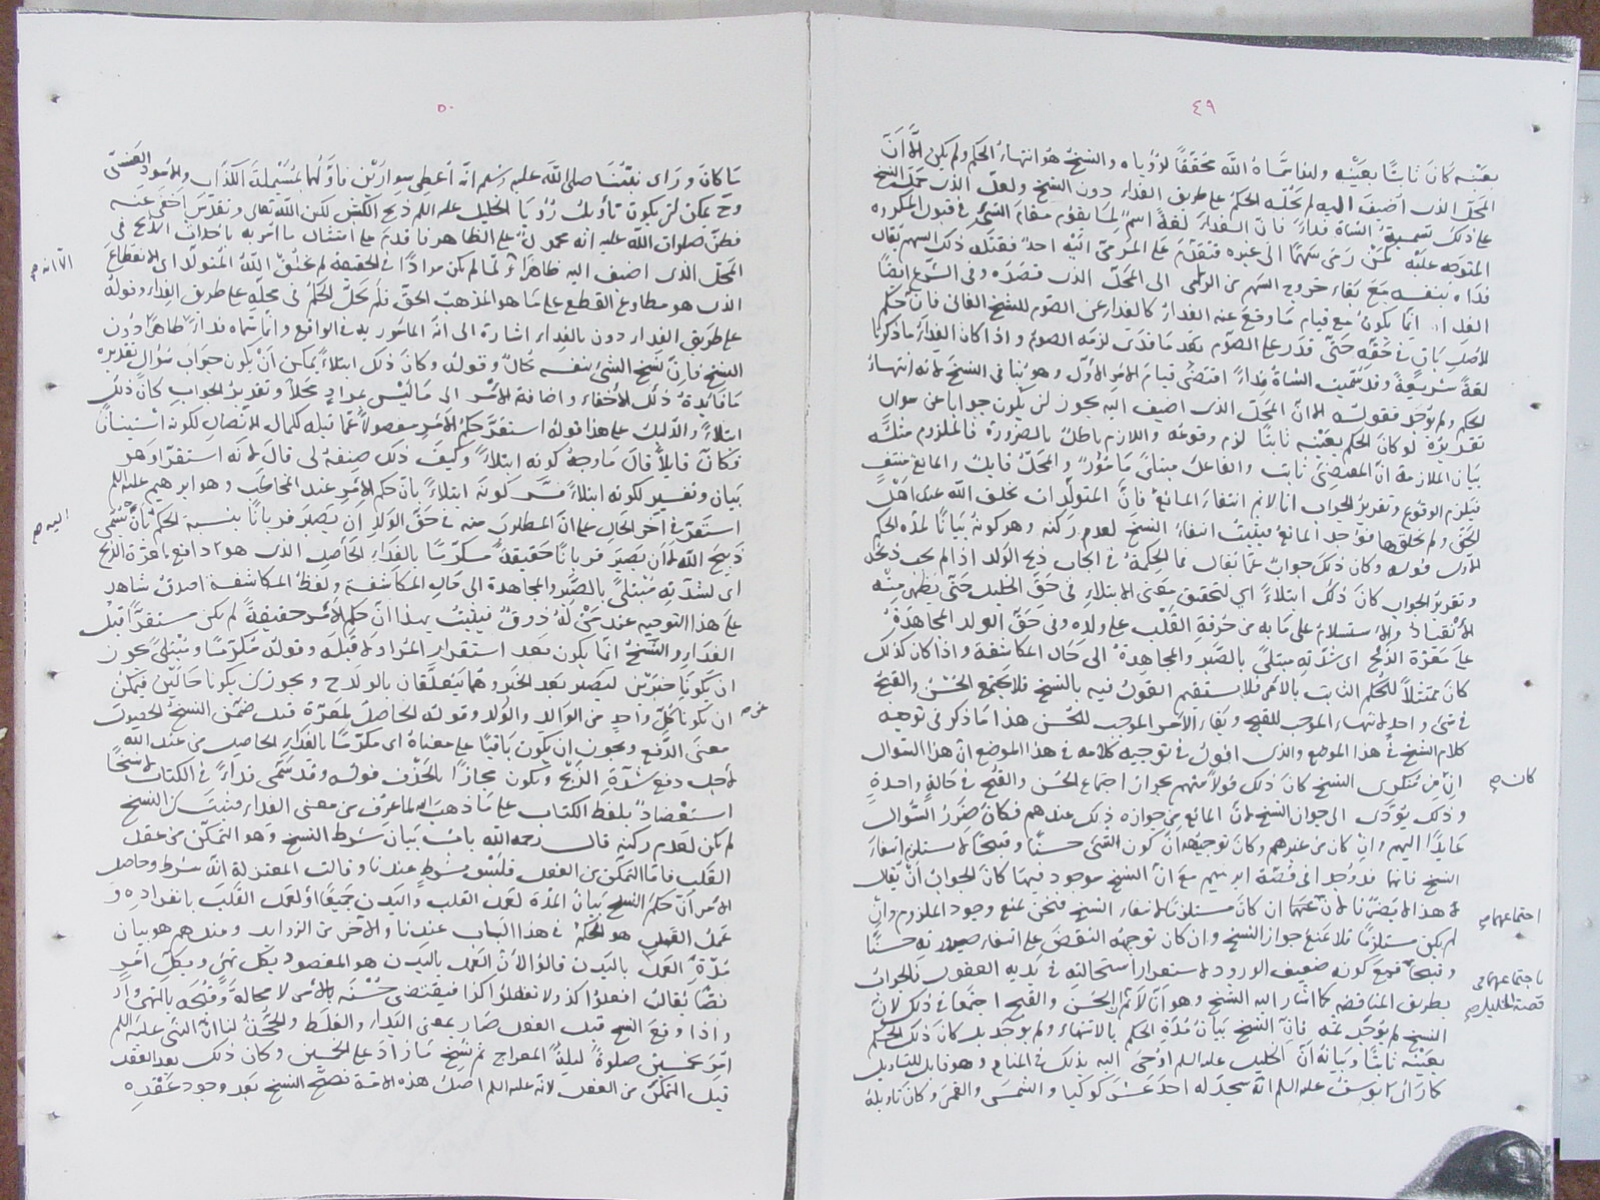 ٤٩
بعينه كان ثابتًا بعينه وانما سماه الله محققًا لرؤياه والنسخ هو انتهاء الحكم ولم يكن الا ان
المحل الذي اضيف اليه لم يحله الحكم على طريق الفداء دون النسخ ولعل الذي حمل الشيخ
على ذلك تسمية الشاة فداء فان الفداء لغة اسم لما يقوم مقام الشيء في قبول المكروه
المتوجه عليه كمن رمى سهمًا الى غيره فتقدم على المرمي اليه احد فقتله ذلك السهم يقال
فداه بنفسه مع بقاء خروج السهم من الرامي الى المحل الذي قصده وفي الشرع ايضًا
الفداء انما يكون مع قيام ما وقع عنه الفداء كالفداء عن الصوم للشيخ الفاني فان حكم
الاصل باق في حقه حتى قدر على الصوم بعد ما فدى لزمه الصوم واذا كان الفداء ما ذكرنا
لغةً شريعةً وقد سميت الشاة فداءً اقتضى قيام الامر الاول وهو ينافي النسخ لانه انتهاء
الحكم ولم يوجد فقوله الا ان المحل الذي اضيف اليه يجوز ان يكون جوابا عن سؤال
تقديره لو كان الحكم بعينه ثابتًا لزم وقوعه واللازم باطل بالضرورة فالملزوم مثله
بيان الملازمة ان المقتضى ثابت والفاعل مبتلى مامور والمحل قابل والمانع منتف
فيلزم الوقوع وتقرير الجواب انا لا نم انتفاء المانع فان المتولدات بخلق الله عند اهل
الحق ولم يخلقها فوجد المانع فيثبت انتفاء النسخ لعدم ركنه وهو كونه بيانًا لمدة الحكم
الاول قوله وكان ذلك جواب عما يقال فما الحكمة في ايجاب ذبح الولد اذا لم يجب ذبحه
وتقرير الجواب كان ذلك ابتلاءً اي لتحقيق معنى الابتلاء في حق الخليل حتى يظهر منه
الانقياد والاستسلام على ما به من حرقة القلب على ولده وفي حق الولد المجاهدة
على معرة الذبح اي شدته مبتلى بالصبر والمجاهدة الى حال المكاشفة واذا كان كذلك
كان ممتثلا للحكم الثابت بالامر فلا يستقيم القول فيه بالنسخ فلا يجتمع الحسن والقبح
في شيء واحد لانتهاء الموجب للقبح وبقاء الامر الموجب للحسن هذا ما ذكر في توجيه
كلام الشيخ في هذا الموضع والذي اقول في توجيه كلامه في هذا الموضع ان هذا السؤال
ان من منكري النسخ كان ذلك قولاً منهم بجواز اجتماع الحسن والقبح في حالة واحدة
وذلك يؤدي الى جواز النسخ لان المانع من جوازه ذلك عندهم فكان ضرر السؤال
عايدًا اليهم وان كان من غيرهم وكان توجيهه ان كون الشئ حسنًا وقبيحًا لا يستلزم انتفاء
النسخ فانهما قد وجدا في قصة ابرهيم مع ان النسخ موجود فيها كان الجواب ان يقال
هذا لا يضرنا لان اجتماعهما ان كان مستلزمًا لانتفاء النسخ فنحن نمنع وجود الملزوم وان
لم يكن مستلزمًا فلا يمنع جواز النسخ وان كان توجيه النقض على انتفاء صيرورته حسنًا
وقبيحًا فمع كونه ضعيف الورود لاستقرار استحالته في بديه العقول فالجواب
بطريق المناقضه كما اشار اليه الشيخ وهو انا لا نم ان الحسن والقبح اجتمعا في ذلك لان
النسخ لم يوجد ثمه فان النسخ بيان مدة الحكم بالانتهاء ولم يوجد بل كان ذلك الحكم
بعينه ثابتًا وبيانه ان الخليل عليه السلم اوحي اليه بذلك في المنام وهو قابل للتاويل
كما راى يوسف عليه السلم انه سجد له احد عشر كوكبا والشمس والقمر وكان تاويله
كان صح
اجتماعهما صح
باجتماعهما في
قصة الخليل صح
٥٠
ما كان وراى نبينا صلى الله عليه وسلم انه اعطى سوارين فاولهما بمسيلمة الكذاب والاسود العنسي
وح يمكن ان يكون تأويل رؤيا الخليل عليه السلم ذبح الكبش لكن الله تعالى وتقدس اخفى عنه
فظن صلوات الله عليه انه محمول على الظاهر فاقدم على امتثال ما امر به باحداث الذبح في
المحل الذي اضيف اليه ظاهرًا ولما لم يكن مرادًا في الحقيقة لم يخلق الله المتولد اي الانقطاع
الذي هو مطاوع القطع على ما هو المذهب الحق فلم يحل الحكم في محله على طريق الفداء وقوله
على طريق الفداء دون بالفداء اشارة الى انه المامور به في الواقع وانما سماه فداءً ظاهرًا دون
النسخ فان نسخ الشئ بنفسه محال وقوله وكان ذلك ابتلاءً يمكن ان يكون جواب سؤال تقديره
ما فائدة ذلك الاخفاء واضافة الامر الى ما ليس بمراد محلاً وتقدير الجواب كان ذلك
ابتلاءً والدليل على هذا قوله استقر حكم الامر مفصولاً عما قبله لكمال الاتصال لكونه استينافًا
وكان قايلاً قال ما وجه كونه ابتلاءً وكيف ذلك صفه لي قال لانه استقر او هو
بيان وتفسير لكونه ابتلاءً فسر كونه ابتلاءً بان حكم الامر عند المخاطب وهو ابرهيم عليه السلم
استقر في آخر الحال على ان المطلوب منه في حق الولد ان يصير قربانًا بنسبة الحكم بان سمي
ذبيح الله لا ان يصير قربانًا حقيقةً مكرمًا بالفداء الحاصل الذي هو دافع لمعرة الذبح
اي لشدته مبتلى بالصبر والمجاهدة الى حال المكاشفة ولفظ المكاشفة اصدق شاهد
على هذا التوجيه عند من له ذوق فيثبت بهذا ان حكم الامر حقيقةً لم يكن مستقرًا قبل
الفداء والنسخ انما يكون بعد استقرار المراد لا قبله وقوله مكرمًا ومبتلى يجوز
ان يكونا خبرين ليصير بعد الخبر وهما يتعلقان بالولد ح ويجوز ان يكونا حالين فيمكن
ان يكونا كل واحد من الوالد والولد وقوله الحاصل لمعرة قيل ضمن النسخ الحصول
معنى الدفع ويجوز ان يكون باقيًا على معناه اي مكرمًا بالفداء الحاصل من عند الله
لاجل دفع شدة الذبح ويكون مجازًا بالحذف قوله وقد سمي فداءً في الكتاب لا نسخًا
استعضاد بلفظ الكتاب على ما ذهب اليه لما عرف من معنى الفداء فثبت ان النسخ
لم يكن لعدم ركنه قال رحمه الله باب بيان شرط النسخ وهو التمكن من عقد
القلب فاما التمكن من الفعل فليس بشرط عندنا وقالت المعتزلة انه شرط وحاصل
الامر ان حكم النسخ بيان المدة لعمل القلب والبدن جميعًا او لعمل القلب بانفراده و
عمل القلب هو المحكم في هذا الباب عندنا والآخر من الزوايد وعندهم هو بيان
مدة العمل بالبدن قالوا لان العمل بالبدن هو المقصود بكل نهي وبكل امر
نصًا يقال افعلوا كذا ولا تفعلوا كذا فيقتضي حسنه بالامر لا محالة وقبحه بالنهي واذ
واذا وقع النسخ قبل الفعل صار بمعنى البداء والغلط والحجة لنا ان النبي عليه السلم
امر بخمسين صلوة ليلة المعراج ثم نسخ ما زاد على الخمس وكان ذلك بعد العقد
قبل التمكن من الفعل لانه عليه السلم اصل هذه الامة فصح النسخ بعد وجود عقده
الا انه صح
اليه صح
عن صح